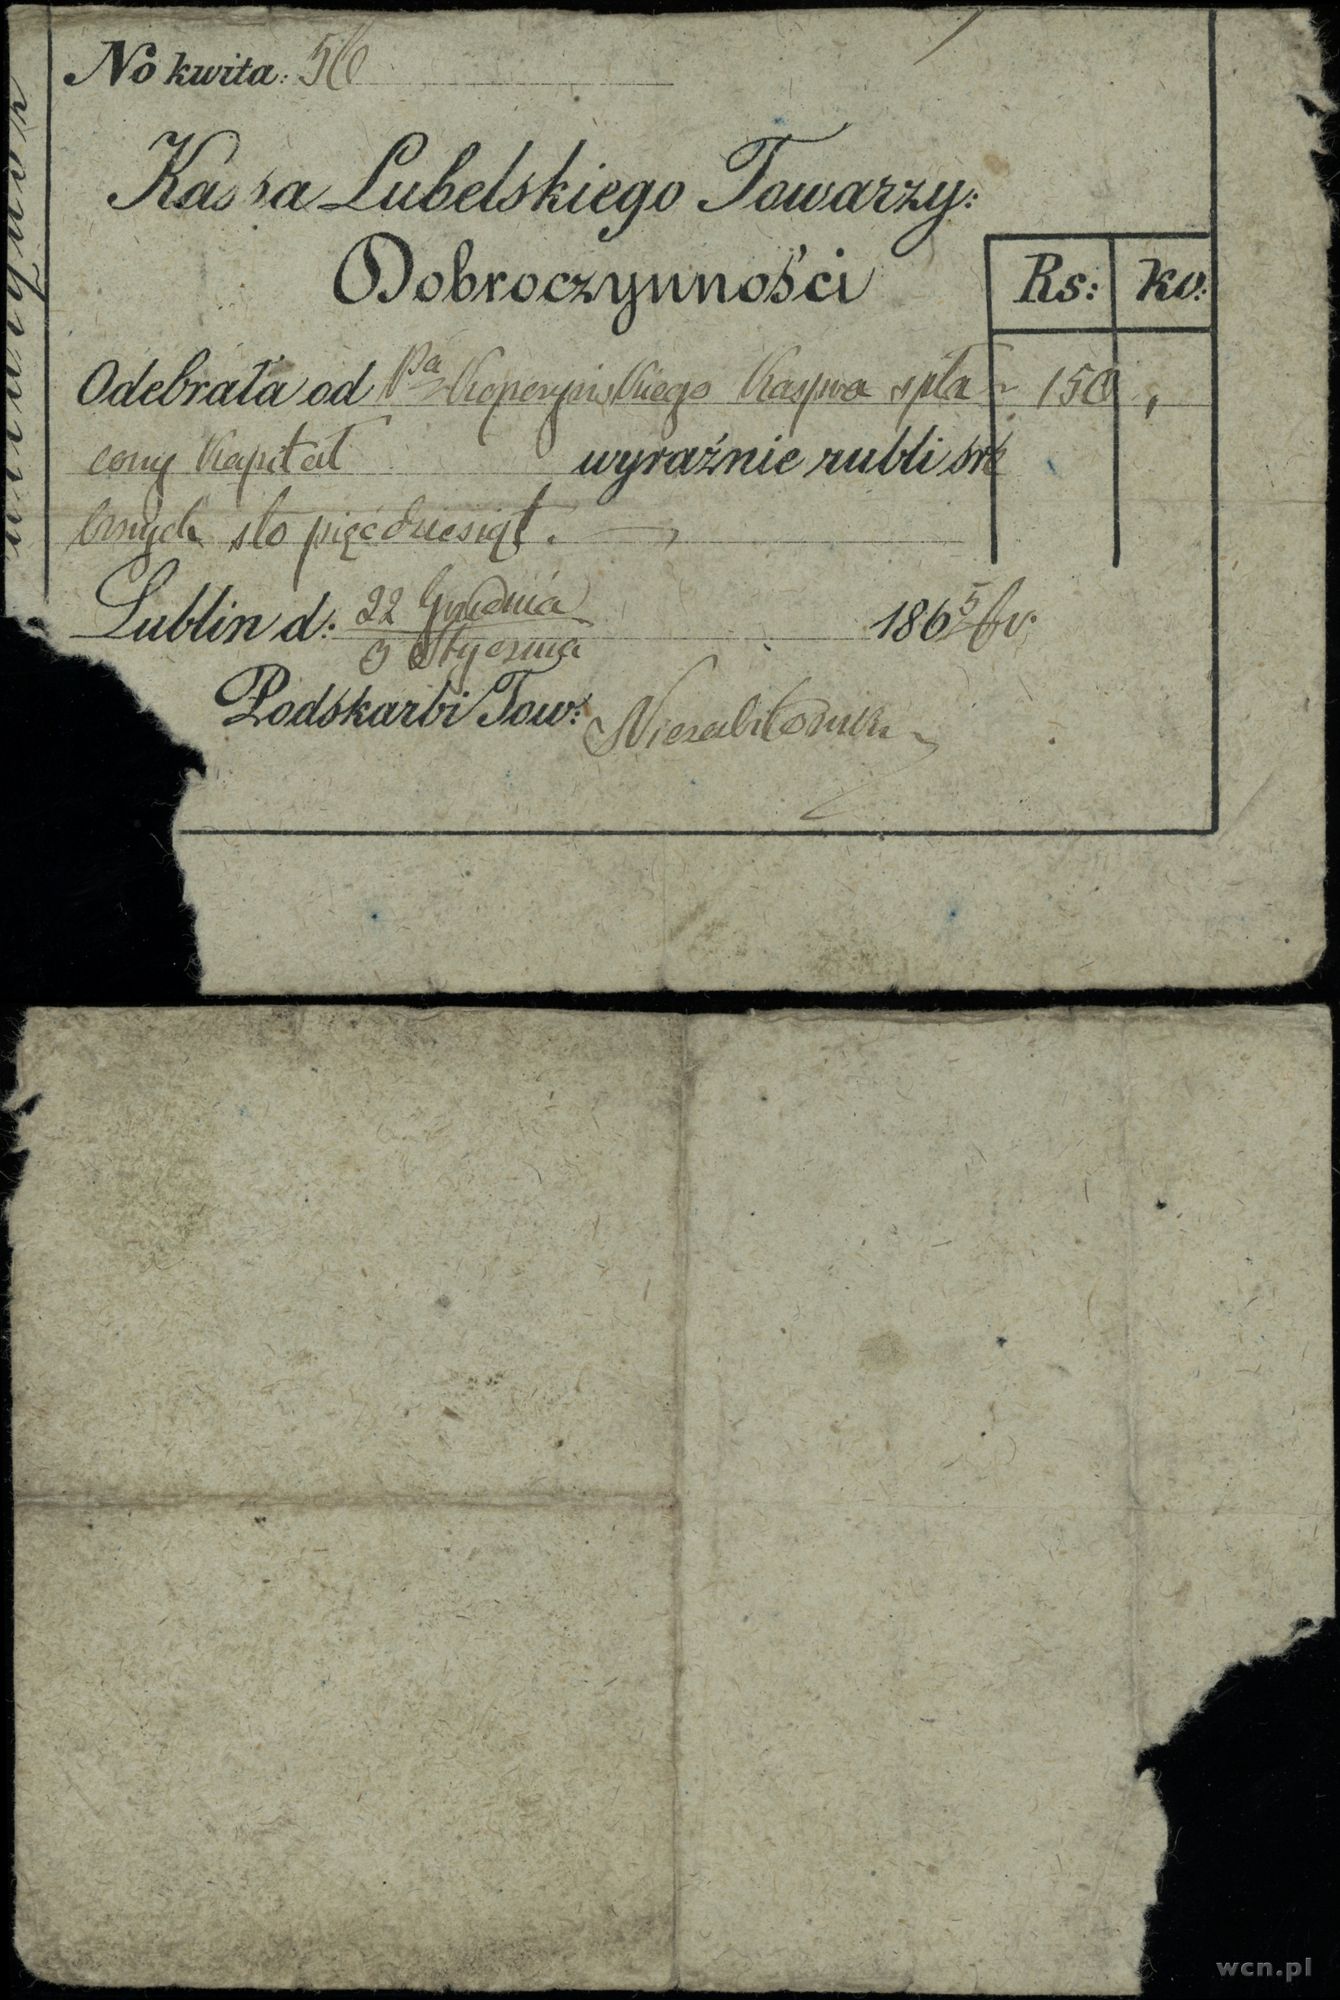 No kwita: 50
Kassa Lubelskiego Towarzy:
Dobroczynności
Rs: ko:
Odebrała od Pa Koperzyńskiego Kaspra spła 150
cony Kapitał wyraźnie rubli sre
brnych sto pięćdziesiąt.
Lublin d: 22 Grudnia 1865/6 r.
3 Stycznia
Podskarbi Tow: Niezabitowski
wcn.pl